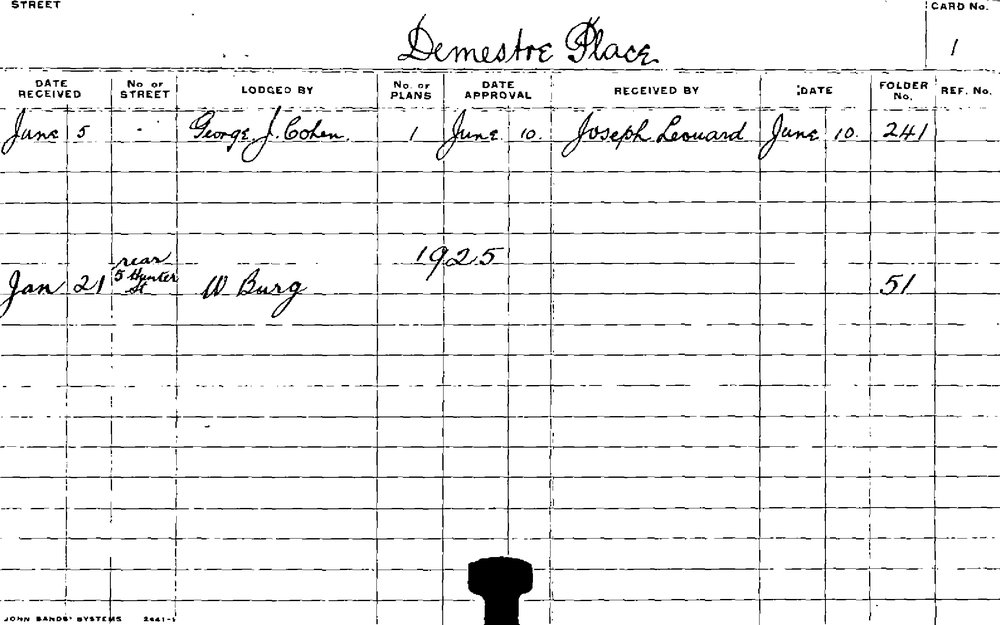 STREET
CARD No.
Demestre Place
1
DATE RECEIVED
No of STREET
LODGED BY
No. of PLANS
DATE APPROVAL
RECEIVED BY
DATE
FOLDER No.
REF. No.
June 5 - George J. Cohen. 1 June 10. Joseph Leonard June 10. 241
1925
rear
5 Hunter
St
Jan 21 W Burg 51
JOHN SANDS' SYSTEMS 2441-1